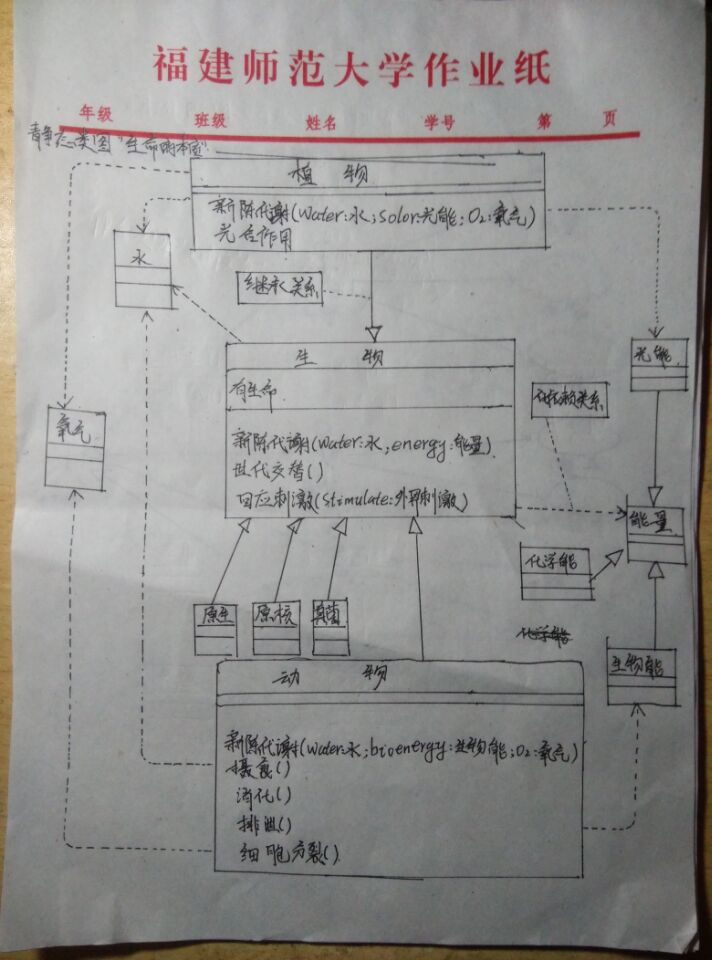 福建师范大学作业纸
年级 班级 姓名 学号 第 页
静态类图"生命的本质"
植物
新陈代谢(Water:水;Solor:光能;O₂:氧气)
光合作用
水
继承关系
生物
有生命
新陈代谢(Water:水,energy:能量)
世代交替()
回应刺激(Stimulate:外界刺激)
光能
依赖关系
氧气
能量
化学能
原生
原核
真菌
化学能
生物能
动物
新陈代谢(Water:水;bioenergy:生物能;O₂:氧气)
摄食()
消化()
排泄()
细胞分裂()